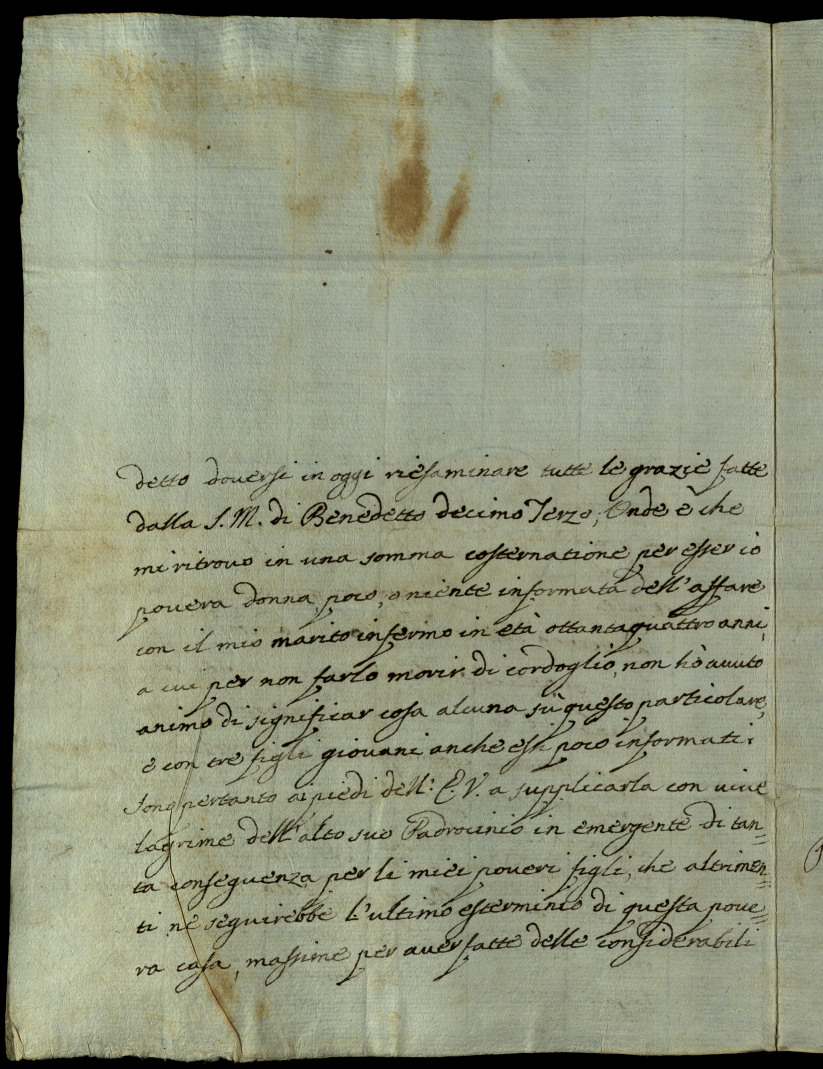 detto doversi in oggi riesaminare tutte le grazie fatte
dalla S. M. di Benedetto decimo Terzo; Onde è che
mi ritrovo in una somma costernatione per esser io
povera donna poco, o niente informata dell'affare
con il mio marito infermo in età ottantaquattro anni,
a cui per non farlo morir di cordoglio non hò avuto
animo di significar cosa alcuna sù questo particolare,
e con tre figli giovani anche essi poco informati:
Sono pertanto ai piedi dell: E. V. a supplicarla con vive
lagrime dell'alto suo Padrocinio in emergente di tan=
ta conseguenza per li miei poveri figli, che altrimen=
ti ne seguirebbe l'ultimo esterminio di questa pove=
ra casa, massime per aver fatte delle considerabili